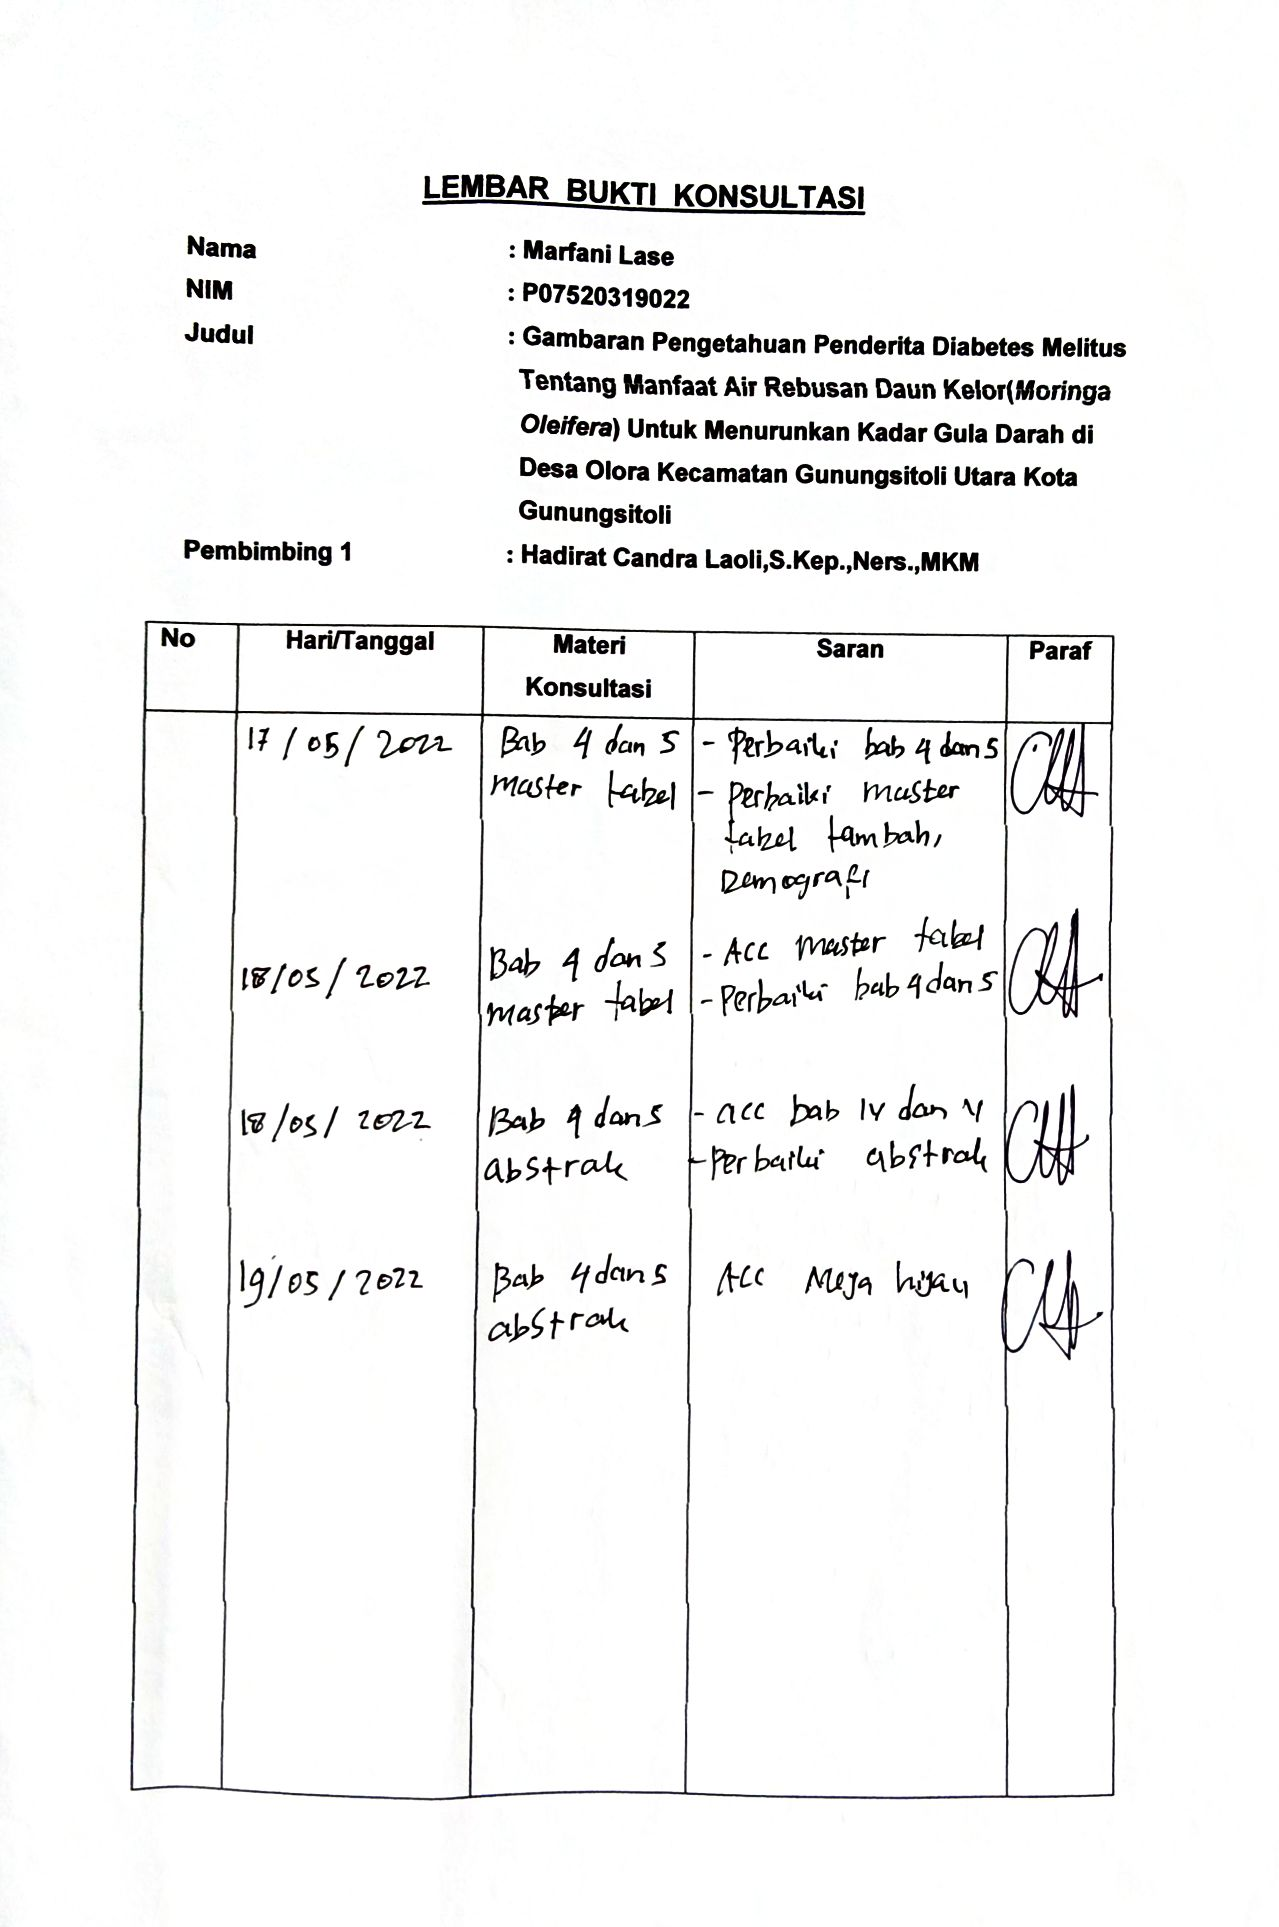 LEMBAR BUKTI KONSULTASI
Nama : Marfani Lase
NIM : P07520319022
Judul : Gambaran Pengetahuan Penderita Diabetes Melitus
Tentang Manfaat Air Rebusan Daun Kelor(Moringa
Oleifera) Untuk Menurunkan Kadar Gula Darah di
Desa Olora Kecamatan Gunungsitoli Utara Kota
Gunungsitoli
Pembimbing 1 : Hadirat Candra Laoli,S.Kep.,Ners.,MKM
No Hari/Tanggal Materi Saran Paraf
Konsultasi
17/05/2022 Bab 4 dan 5 - Perbaiki bab 4 dan 5
master tabel - Perbaiki master
tabel tambah,
Demografi
18/05/2022 Bab 4 dan 5 - Acc master tabel
master tabel - Perbaiki bab 4 dan 5
18/05/2022 Bab 4 dan 5 - acc bab IV dan V
abstrak - Perbaiki abstrak
19/05/2022 Bab 4 dan 5 Acc Meja hijau
abstrak